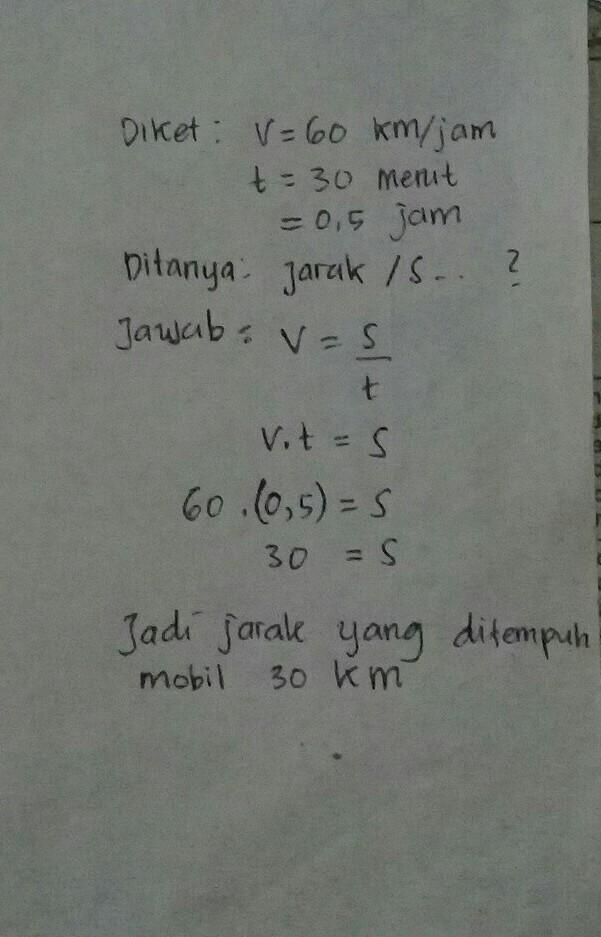 Diket : V = 60 km/jam
t = 30 menit
= 0,5 jam
Ditanya: jarak / s... ?
Jawab : V = s/t
v.t = s
60 . (0,5) = s
30 = s
Jadi jarak yang ditempuh
mobil 30 km